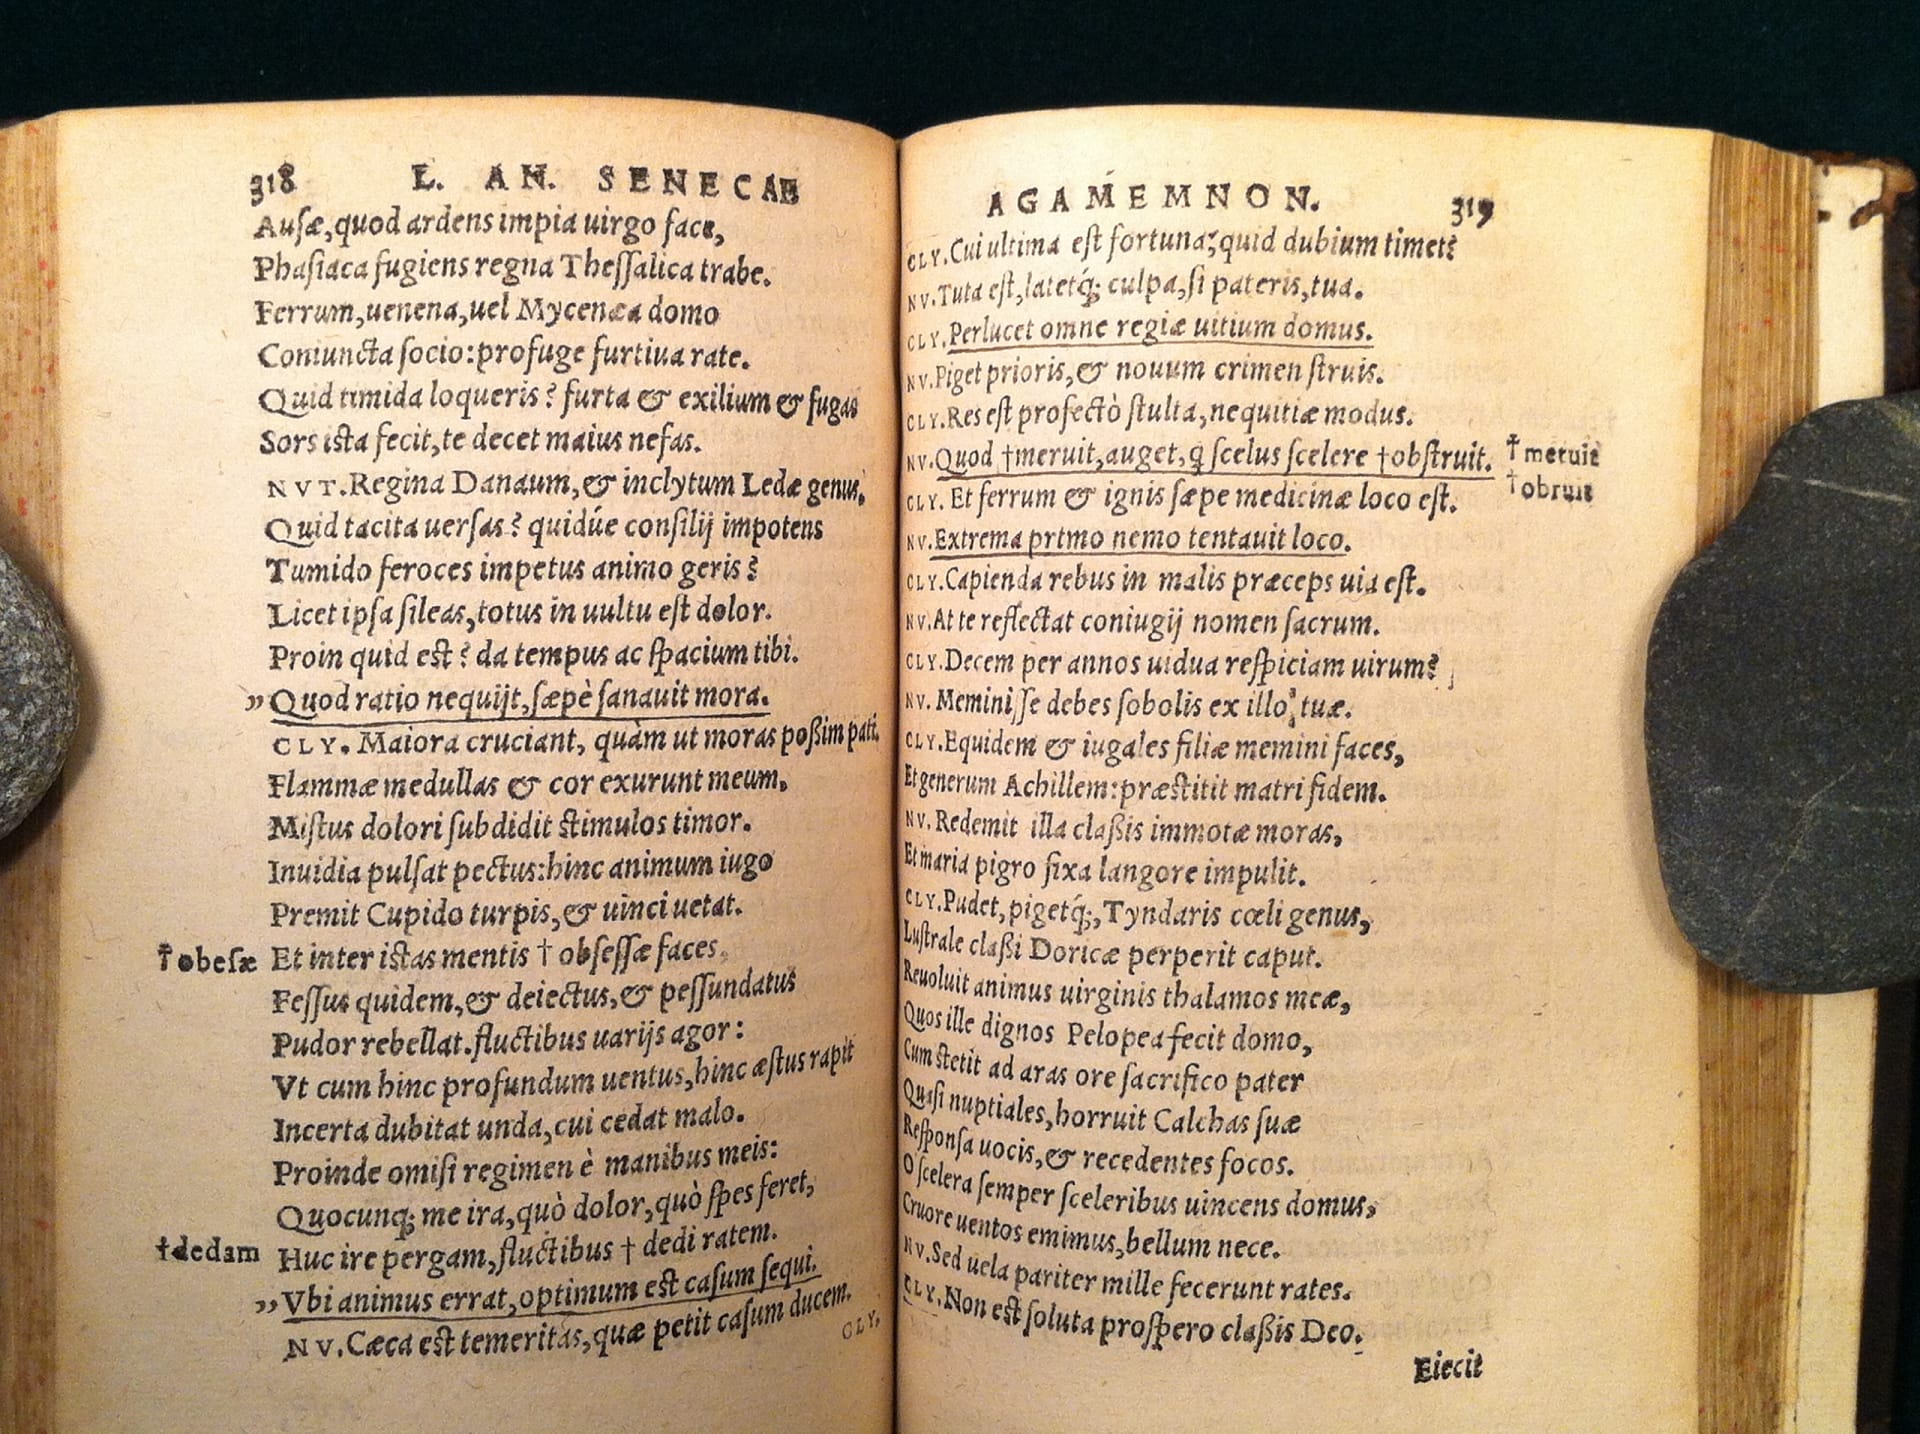 318 L. AN. SENECAE
Auſæ, quod ardens impia uirgo face,
Phaſiaca fugiens regna Theſſalica trabe.
Ferrum, uenena, uel Mycenæa domo
Coniuncta ſocio: profuge furtiua rate.
Quid timida loqueris? furta & exilium & fugas
Sors iſta fecit, te decet maius nefas.
NVT. Regina Danaum, & inclytum Ledæ genus,
Quid tacita uerſas? quidúe conſilij impotens
Tumido feroces impetus animo geris?
Licet ipſa ſileas, totus in uultu eſt dolor.
Proin quid est? da tempus ac ſpacium tibi.
„ Quod ratio nequijt, ſæpè ſanauit mora.
CLY. Maiora cruciant, quàm ut moras poßim pati.
Flammæ medullas & cor exurunt meum,
Miſtus dolori ſubdidit stimulos timor.
Inuidia pulſat pectus: hinc animum iugo
Premit Cupido turpis, & uinci uetat.
†obeſæ Et inter istas mentis † obſeſſæ faces,
Feſſus quidem, & deiectus, & peſſundatus
Pudor rebellat. fluctibus uarijs agor:
Vt cum hinc profundum uentus, hinc æſtus rapit
Incerta dubitat unda, cui cedat malo.
Proinde omiſi regimen è manibus meis:
Quocunq; me ira, quò dolor, quò ſpes feret,
†dedam Huc ire pergam, fluctibus † dedi ratem.
„ Vbi animus errat, optimum est caſum ſequi.
NV. Cæca est temeritas, quæ petit caſum ducem.
CLY.
AGAMEMNON. 319
CLY. Cui ultima eſt fortuna, quid dubium timet?
NV. Tuta eſt, latetq́; culpa, ſi pateris, tua.
CLY. Perlucet omne regiæ uitium domus.
NV. Piget prioris, & nouum crimen ſtruis.
CLY. Res eſt profectò ſtulta, nequitiæ modus.
NV. Quod †meruit, auget, q ſcelus ſcelere †obſtruit. †metuit
†obruit
CLY. Et ferrum & ignis ſæpe medicinæ loco eſt.
NV. Extrema prtmo nemo tentauit loco.
CLY. Capienda rebus in malis præceps uia eſt.
NV. At te reflectat coniugij nomen ſacrum.
CLY. Decem per annos uidua reſpiciam uirum?
NV. Meminiſſe debes ſobolis ex illo tuæ.
CLY. Equidem & iugales filiæ memini faces,
Et generum Achillem: præstitit matri fidem.
NV. Redemit illa claßis immotæ moras,
Et maria pigro fixa langore impulit.
CLY. Pudet, pigetq́;, Tyndaris cœli genus,
Luſtrale claßi Doricæ peperit caput.
Reuoluit animus uirginis thalamos meæ,
Quos ille dignos Pelopea fecit domo,
Cum stetit ad aras ore ſacrifico pater
Quaſi nuptiales, horruit Calchas ſuæ
Reſponſa uocis, & recedentes focos.
O ſcelera ſemper ſceleribus uincens domus,
Cruore uentos emimus, bellum nece.
NV. Sed uela pariter mille fecerunt rates.
CLY. Non est ſoluta proſpero claßis Deo.
Eiecit